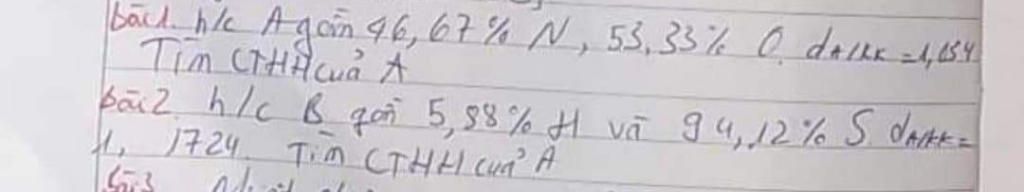 bài 1. h/c A gồm 46,67% N, 53,33% O. dA/KK = 1,034
Tìm CTHH của A
bài 2. h/c B gồm 5,88% H và 94,12% S. dA/KK =
1,1724. Tìm CTHH của A
bài 3